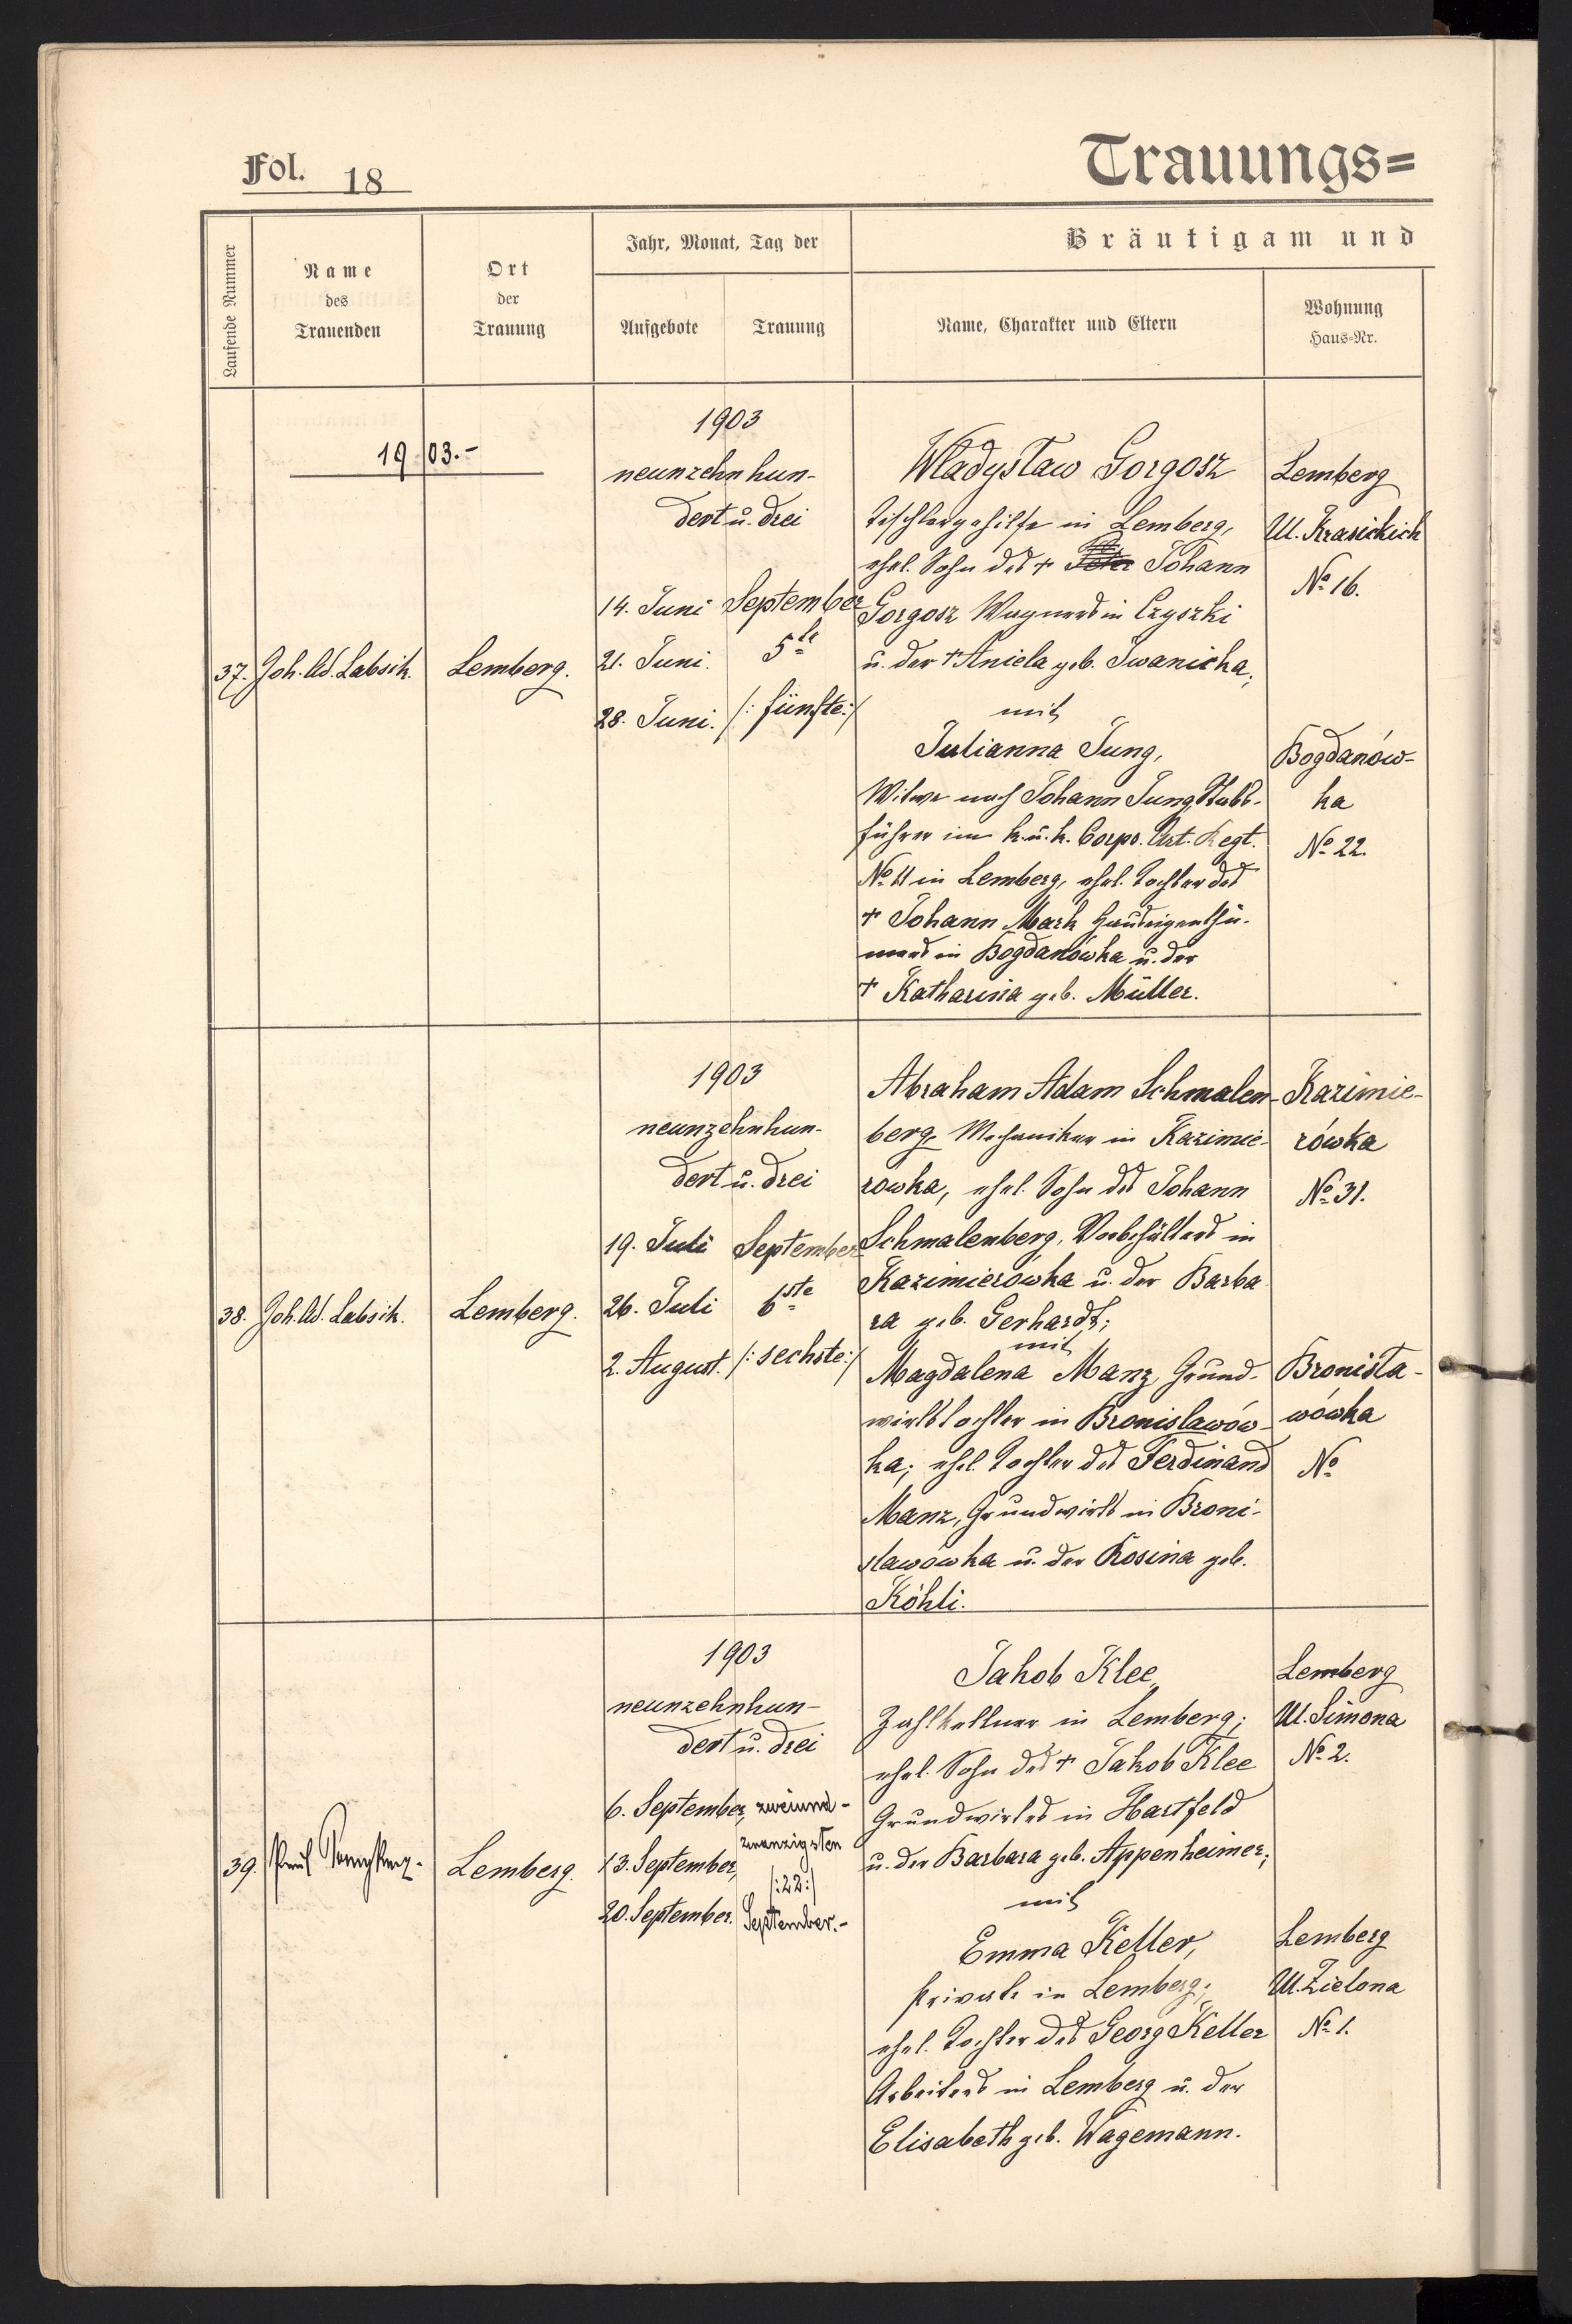 Fol. 18
Trauungs=
Laufende Nummer
Name
des
Trauenden
Ort
der
Trauung
Jahr, Monat, Tag der
Aufgebote
Trauung
Bräutigam und
Name, Charakter und Eltern
Wohnung
Haus=Nr.
1903.-
37.
Joh. Ad. Labsik.
Lemberg.
1903
neunzehnhun-
dert u. drei
14. Juni
21. Juni.
28. Juni.
September
5te
/: fünfte :/
Władysław Gorgosz
Tischlergehilfe in Lemberg,
ehel. Sohn des + Peter Johann
Gorgosz Wagners in Czyszki
u. der + Aniela geb. Iwanicka;
mit
Julianna Jung,
Witwe nach Johann Jung, Stabs-
führer im k. u. k. Corps. Art. Regt.
No 11 in Lemberg, ehel. Tochter des
+ Johann Mark Hauseigenthü-
mers in Bogdanówka u. der
+ Katharina geb. Müller.
Lemberg
Ul. Krasickich
No 16.
Bogdanów-
ka
No 22.
38.
Joh. Ad. Labsik.
Lemberg.
1903
neunzehnhun-
dert u. drei
19. Juli
26. Juli
2. August.
September
6ste
/: sechste :/
Abraham Adam Schmalen-
berg, Mechaniker in Kazimie-
rowka, ehel. Sohn des Johann
Schmalenberg, Vorbehälters in
Kazimierówka u. der Barba
ra geb. Gerhardt;
mit
Magdalena Manz, Grund-
wirtstochter in Bronisławów-
ka; ehel. Tochter des Ferdinand
Manz, Grundwirts in Broni-
sławówka u. der Rosina geb.
Köhli.
Kazimie-
rówka
No 31.
Bronisła-
wówka
No
39.
Lemberg.
1903
neunzehnhun-
dert u. drei
6. September,
13. September,
20. September.
zweiund-
zwanzigsten
/: 22 :/
September.-
Jakob Klee,
Zahlkellner in Lemberg;
ehel. Sohn des + Jakob Klee
Grundwirtes in Hartfeld
u. der Barbara geb. Appenheimer;
mit
Emma Keller,
Private in Lemberg;
ehel. Tochter des Georg Keller
Arbeiters in Lemberg u. der
Elisabeth geb. Wagemann.
Lemberg
Ul. Simona
No 2.
Lemberg
Ul. Zielona
No 1.